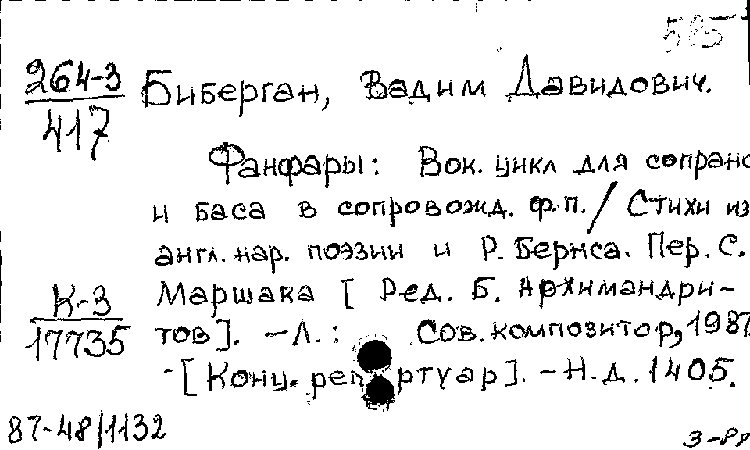 585
264-3 Биберган, Вадим Давидович.
417
Фанфары: Вок. цикл для сопрано
и баса в сопровожд. ф.п. / Стихи из
англ. нар. поэзии и Р. Бернса. Пер. С.
К-3 Маршака [Ред. Б. Архимандри-
17735 тов]. - Л.: Сов. композитор, 1987
- [Конц. репертуар]. - Н.д. 1405.
87-48/1132